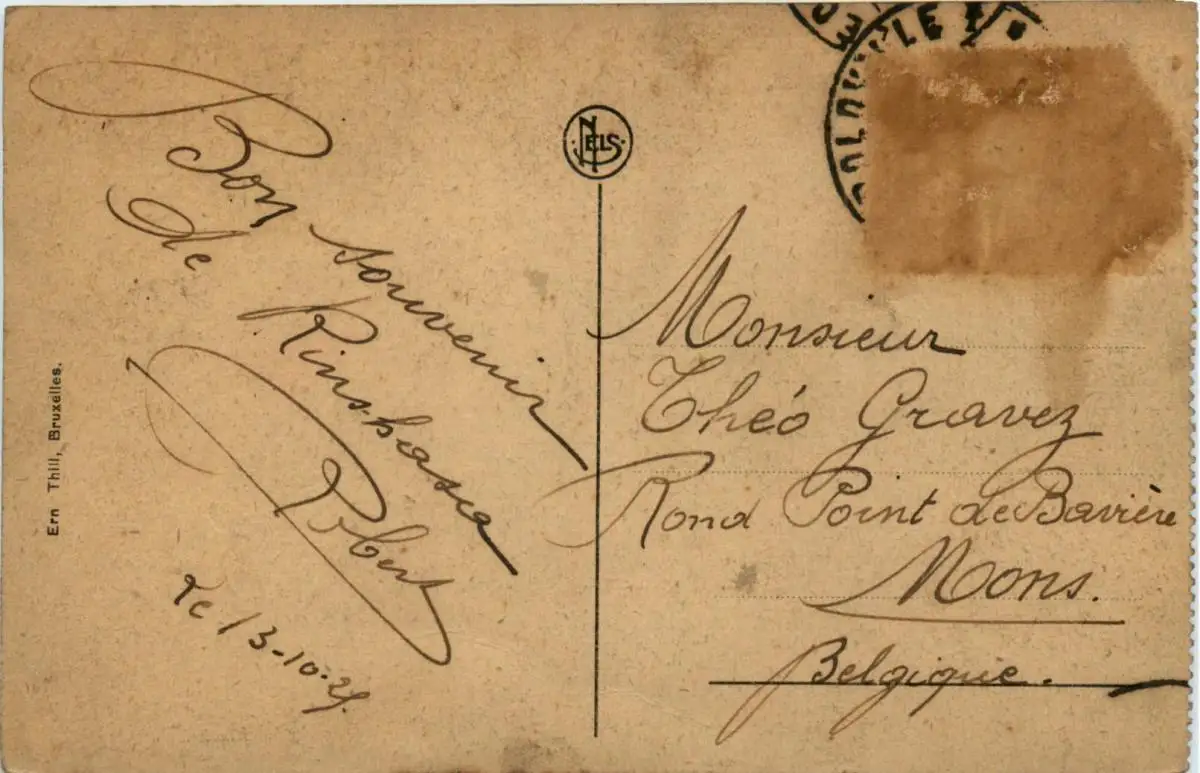 Bon souvenir
de Kinshasa
Robert
Le 13-10-25.
Ern Thill, Bruxelles.
NELS
Monsieur
Théo Gravez
Rond Point de Bavière
Mons.
Belgique.